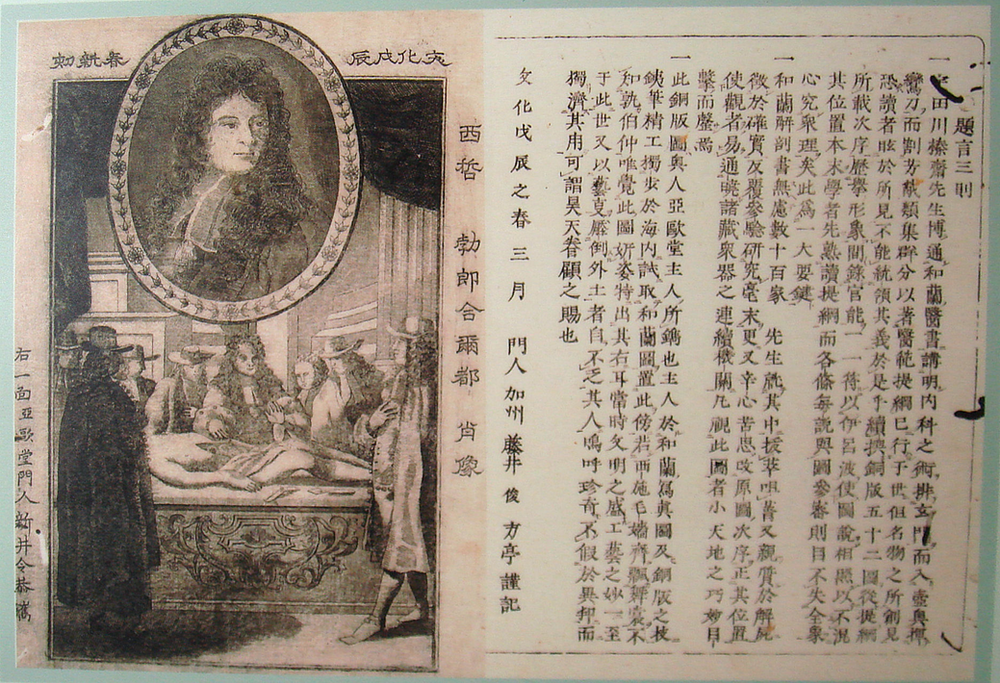 題言三則
一宇田川榛齋先生博通和蘭醫書講明内科之術排玄門而入壼奥揮
鸞刀而割芳猷類集群分以著醫範提綱已行于世但名物之所創見
恐讀者眩於所見不能統領其義於是乎續撰銅版五十二圖從提綱
所載次序歷擧形象間錄官能一一符以伊呂波使圖說相照以不混
其位置本末學者先熟讀提綱而各條每說與圖參考則目不失全象
心究衆理矣此爲一大要鍵
一和蘭解剖書無慮數十百家 先生就其中拔萃咀菁又親質於解屍
徴於確實反覆參驗研究毫末更又辛心苦思改原圖次序正其位置
使觀者易通曉諸藏衆器之連續機關凡視此圖者小天地之巧妙目
擊而罄焉
一此銅版圖與人亞歐堂主人所鐫也主人於和蘭寫眞圖及銅版之技
銕筆精工獨步於海内試取和蘭圖置此傍若西施毛嬙齊飄舞不
知孰伯仲唯覺此圖妍姿特出其右耳當時文明之盛工藝之妙一至
于此世又以藝克壓倒外土者自不乏其人嗚呼珍奇不假於異邦而
獨濟其用可謂昊天眷顧之賜也
文化戊辰之春三月 門人 加州 藤井 俊 方亭謹記
文化戊辰 春新刻
西哲 勃郎合爾都 肖像
右一面亞歐堂門人新井令恭鐫